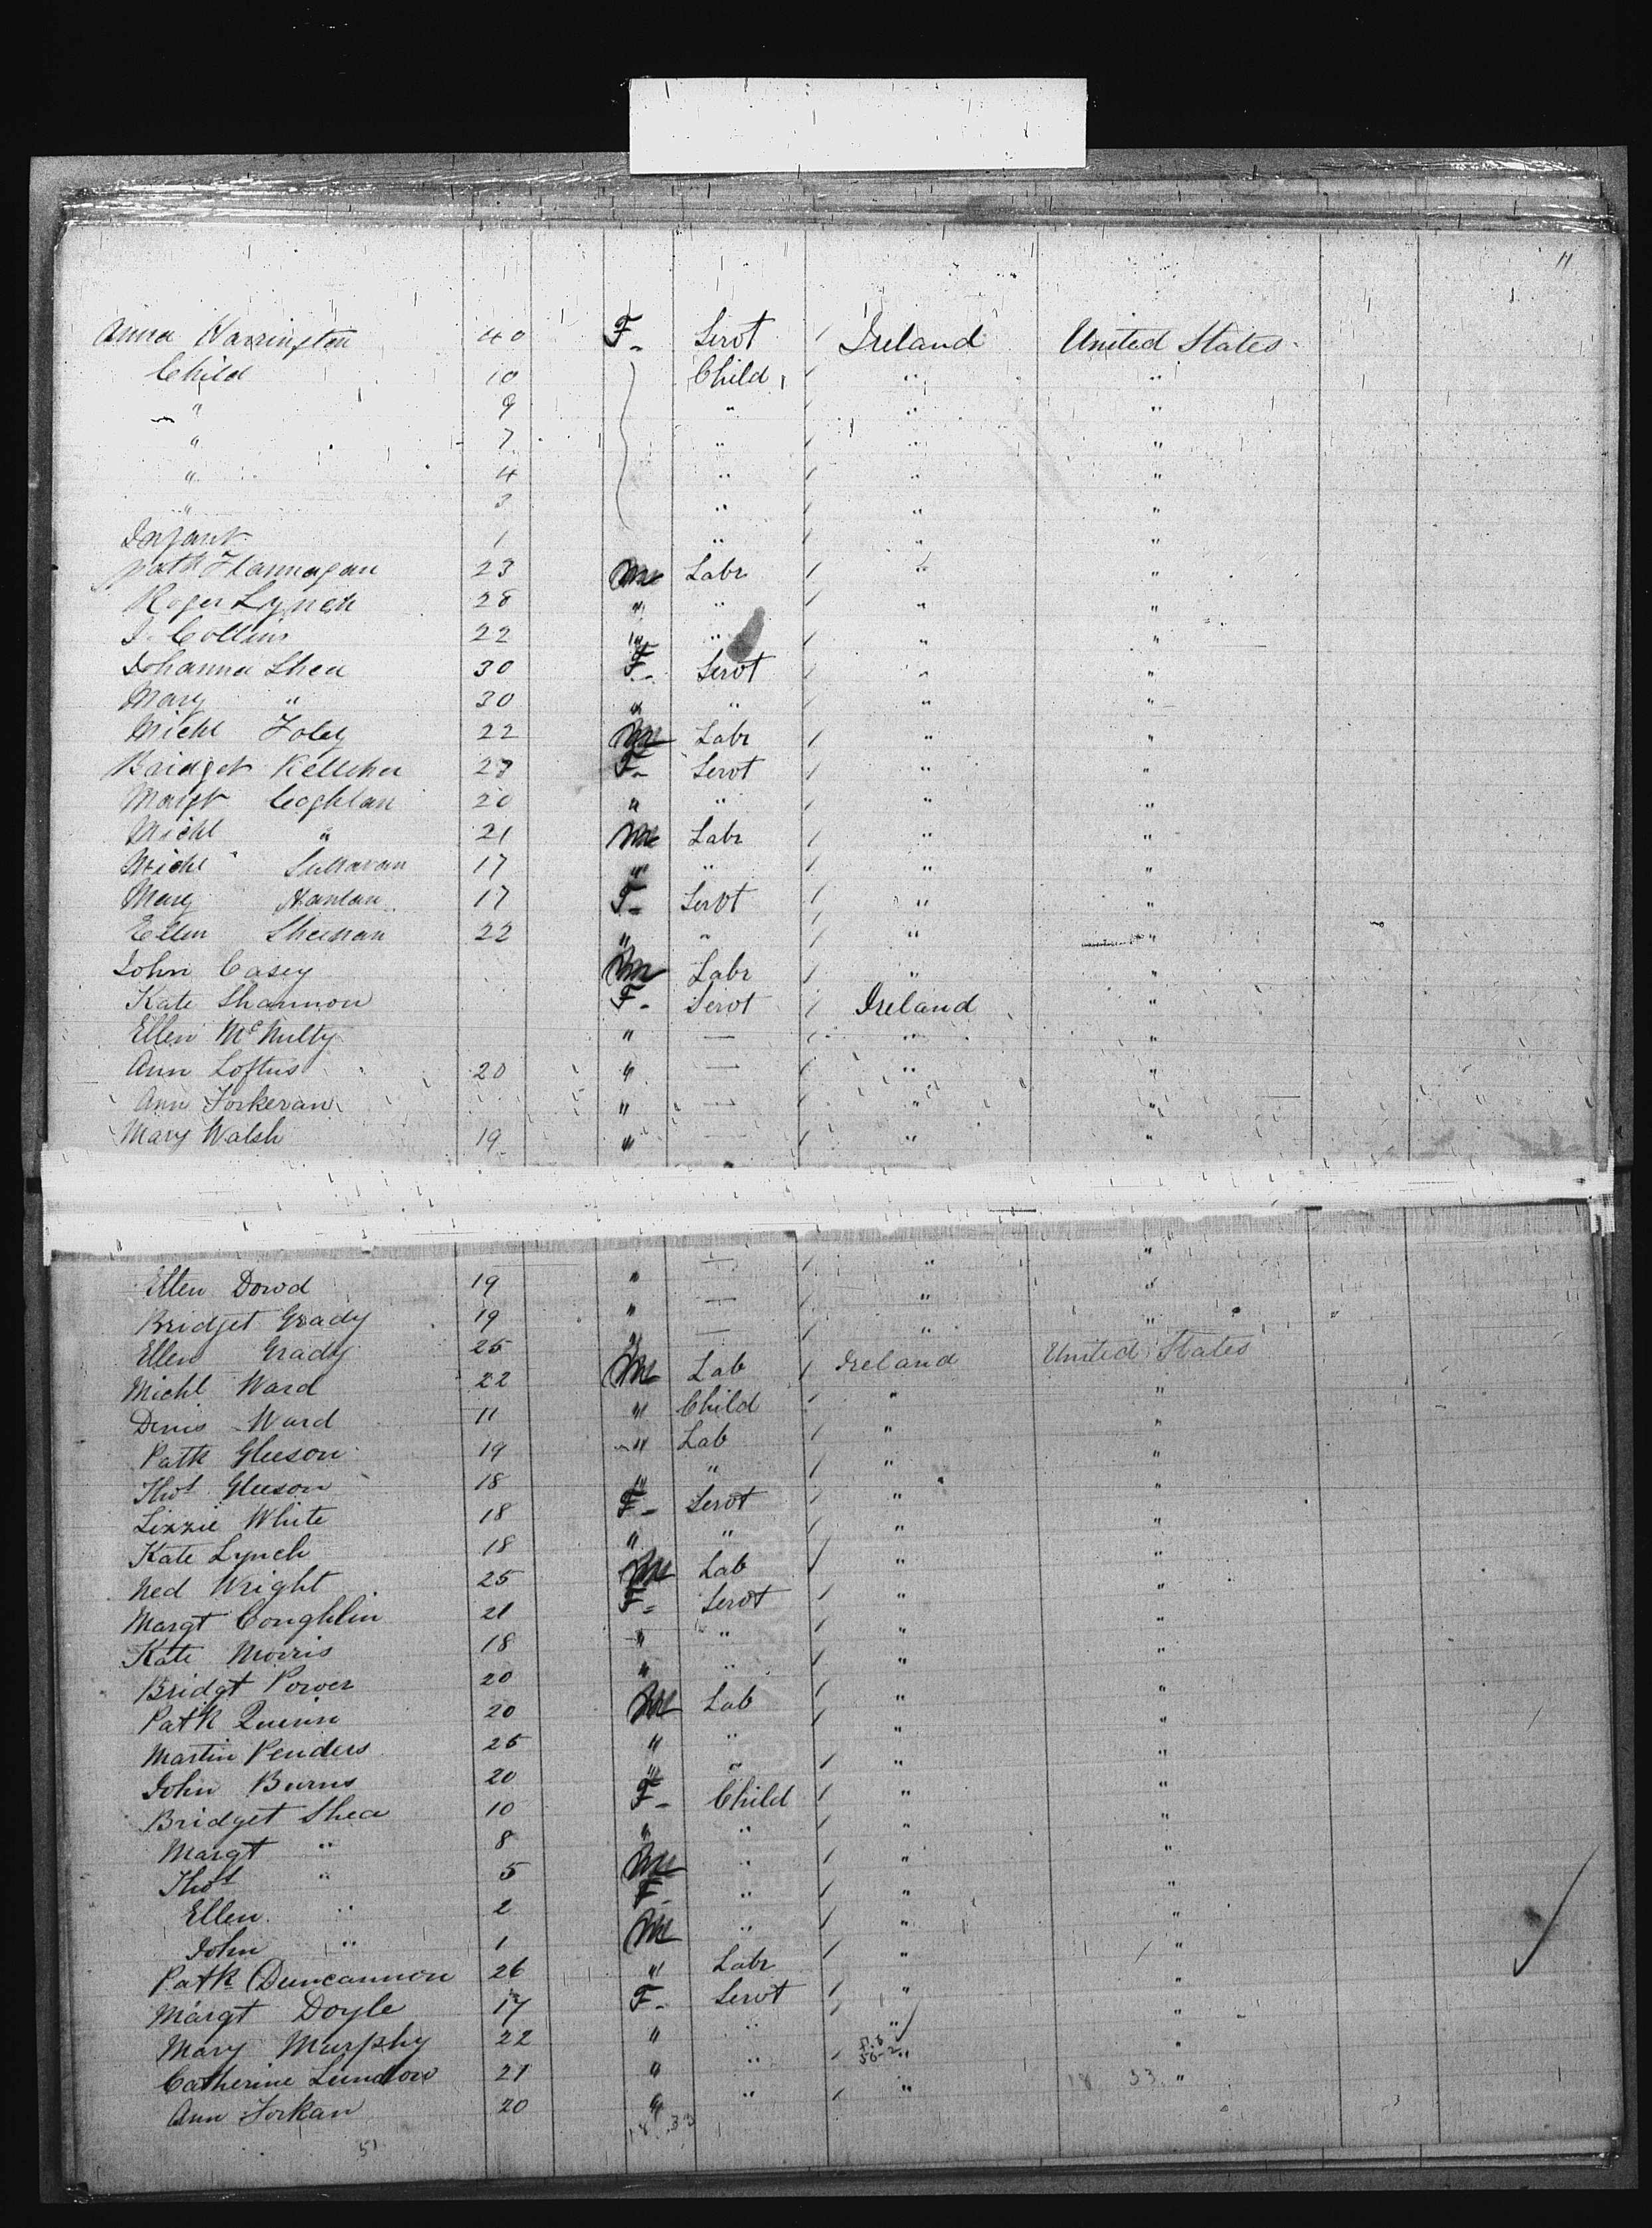 11
Anna Harrington 40 F- Servt / Ireland United States
Child 10 Child / " "
" 9 " / " "
" 7 " / " "
" 4 " / " "
" 3 " / " "
Infant 1 " / " "
Patk Flannagan 23 M Labr / " "
Roger Lynch 28 " " / " "
J. Collins 22 " " / " "
Johanna Shea 30 F- Servt / " "
Mary " 30 " " / " "
Michl Foley 22 M Labr / " "
Bridget Kelleher 27 F- Servt / " "
Margt Coghlan 20 " " / " "
Michl " 21 M Labr / " "
Michl Sullavan 17 " " / " "
Mary Hanlan 17 F- Servt / " "
Ellen Sheenan 22 " " / " "
John Casey M Labr / " "
Kate Shannon F- Servt / Ireland "
Ellen McNulty " — / " "
Ann Loftus 20 " — / " "
Ann Forkeran " — / " "
Mary Walsh 19 " — / " "
Ellen Dowd 19 " — / " "
Bridget Grady 19 " — / " "
Ellen Grady 25 " — / " "
Michl Ward 22 M Lab / Ireland United States
Denis Ward 11 " Child / " "
Patk Gleeson 19 " Lab / " "
Thos Gleeson 18 " " / " "
Lizzie White 18 F- Servt / " "
Kate Lynch 18 " " / " "
Ned Wright 25 M Lab / " "
Margt Coughlin 21 F- Servt / " "
Kate Morris 18 " " / " "
Bridgt Power 20 " " / " "
Patk Quinn 20 M Lab / " "
Martin Penders 25 " " / " "
John Burns 20 " " / " "
Bridget Shea 10 F- Child / " "
Margt " 8 " " / " "
Thos " 5 M " / " "
Ellen " 2 F " / " "
John " 1 M " / " "
Patk Duncannon 26 " Labr / " "
Margt Doyle 17 F- Servt / " "
Mary Murphy 22 " " / " "
Catherine Lundon 21 " " / " "
Ann Forkan 20 " " / " "
18 33
18 33
51